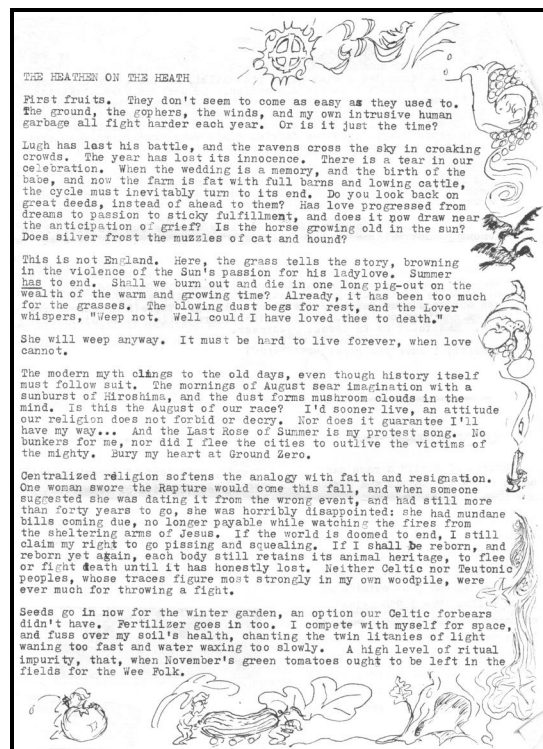 THE HEATHEN ON THE HEATH
First fruits. They don't seem to come as easy as they used to.
The ground, the gophers, the winds, and my own intrusive human
garbage all fight harder each year. Or is it just the time?
Lugh has lost his battle, and the ravens cross the sky in croaking
crowds. The year has lost its innocence. There is a tear in our
celebration. When the wedding is a memory, and the birth of the
babe, and now the farm is fat with full barns and lowing cattle,
the cycle must inevitably turn to its end. Do you look back on
great deeds, instead of ahead to them? Has love progressed from
dreams to passion to sticky fulfillment, and does it now draw near
the anticipation of grief? Is the horse growing old in the sun?
Does silver frost the muzzles of cat and hound?
This is not England. Here, the grass tells the story, browning
in the violence of the Sun's passion for his ladylove. Summer
has to end. Shall we burn out and die in one long pig-out on the
wealth of the warm and growing time? Already, it has been too much
for the grasses. The blowing dust begs for rest, and the Lover
whispers, "Weep not. Well could I have loved thee to death."
She will weep anyway. It must be hard to live forever, when love
cannot.
The modern myth clings to the old days, even though history itself
must follow suit. The mornings of August sear imagination with a
sunburst of Hiroshima, and the dust forms mushroom clouds in the
mind. Is this the August of our race? I'd sooner live, an attitude
our religion does not forbid or decry. Nor does it guarantee I'll
have my way... And the Last Rose of Summer is my protest song. No
bunkers for me, nor did I flee the cities to outlive the victims of
the mighty. Bury my heart at Ground Zero.
Centralized religion softens the analogy with faith and resignation.
One woman swore the Rapture would come this fall, and when someone
suggested she was dating it from the wrong event, and had still more
than forty years to go, she was horribly disappointed: she had mundane
bills coming due, no longer payable while watching the fires from
the sheltering arms of Jesus. If the world is doomed to end, I still
claim my right to go pissing and squealing. If I shall be reborn, and
reborn yet again, each body still retains its animal heritage, to flee
or fight death until it has honestly lost. Neither Celtic nor Teutonic
peoples, whose traces figure most strongly in my own woodpile, were
ever much for throwing a fight.
Seeds go in now for the winter garden, an option our Celtic forbears
didn't have. Fertilizer goes in too. I compete with myself for space,
and fuss over my soil's health, chanting the twin litanies of light
waning too fast and water waxing too slowly. A high level of ritual
impurity, that, when November's green tomatoes ought to be left in the
fields for the Wee Folk.